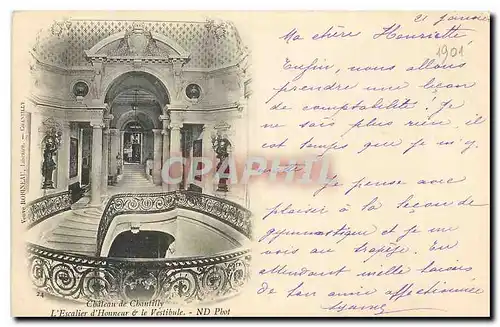 21 Janvier
1901
Ma chère Henriette
Enfin, nous allons
prendre une leçon
de comptabilité ! Je
ne sais plus rien, il
est temps que je m'y
mette. Je pense avec
plaisir à la leçon de
gymnastique et je me
vois au trapèze. En
attendant mille baisers
de ton amie affectionnée
Veuve BORNEAU, Libraire. — CHANTILLY
24
Château de Chantilly
L'Escalier d'Honneur & le Vestibule. - ND Phot
Delcampe